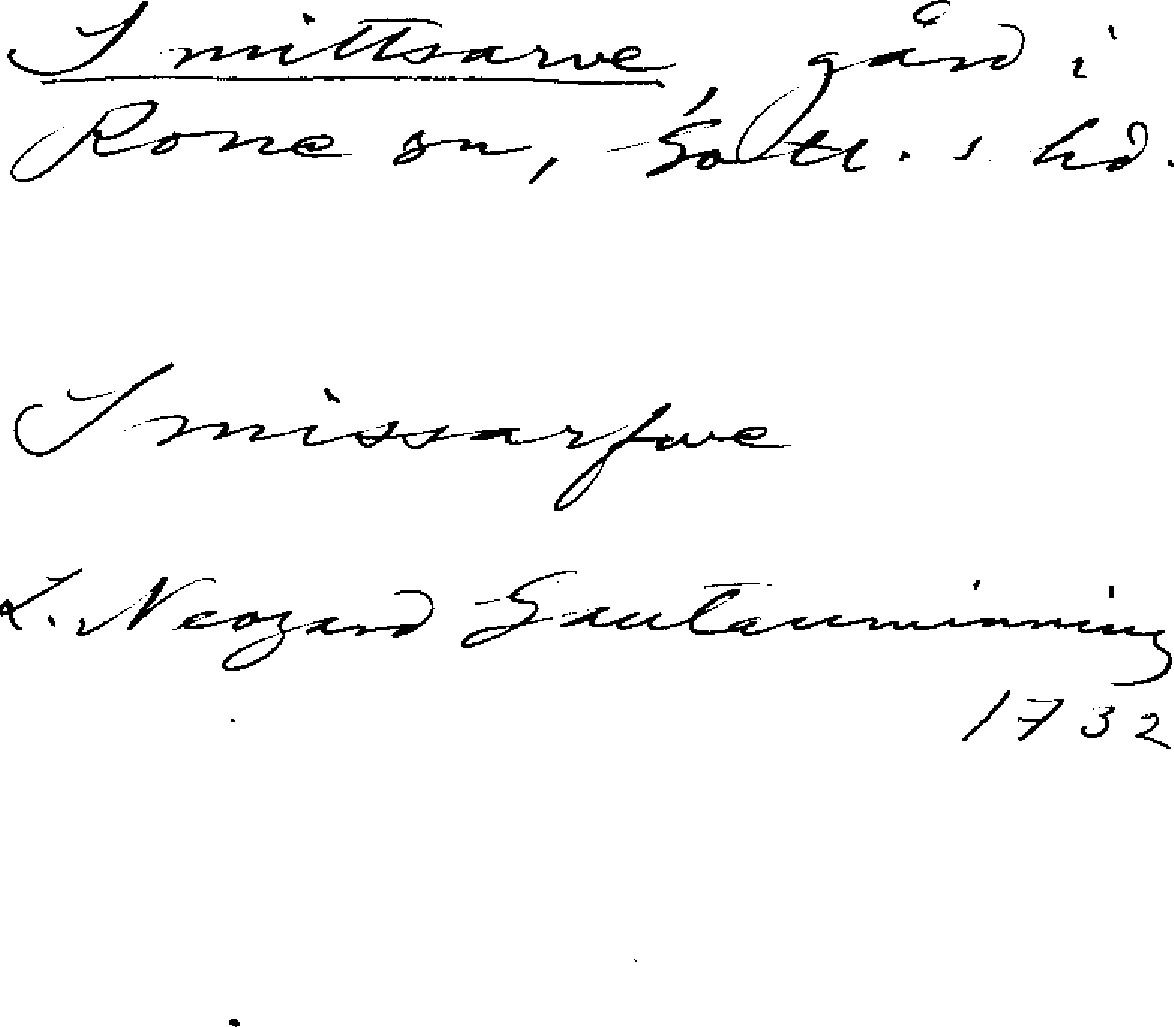 Smittsarve, gård i
Rone sn, Gotl. s. hd.
Smissarfwe
L. Neogard Gautauminning
1732